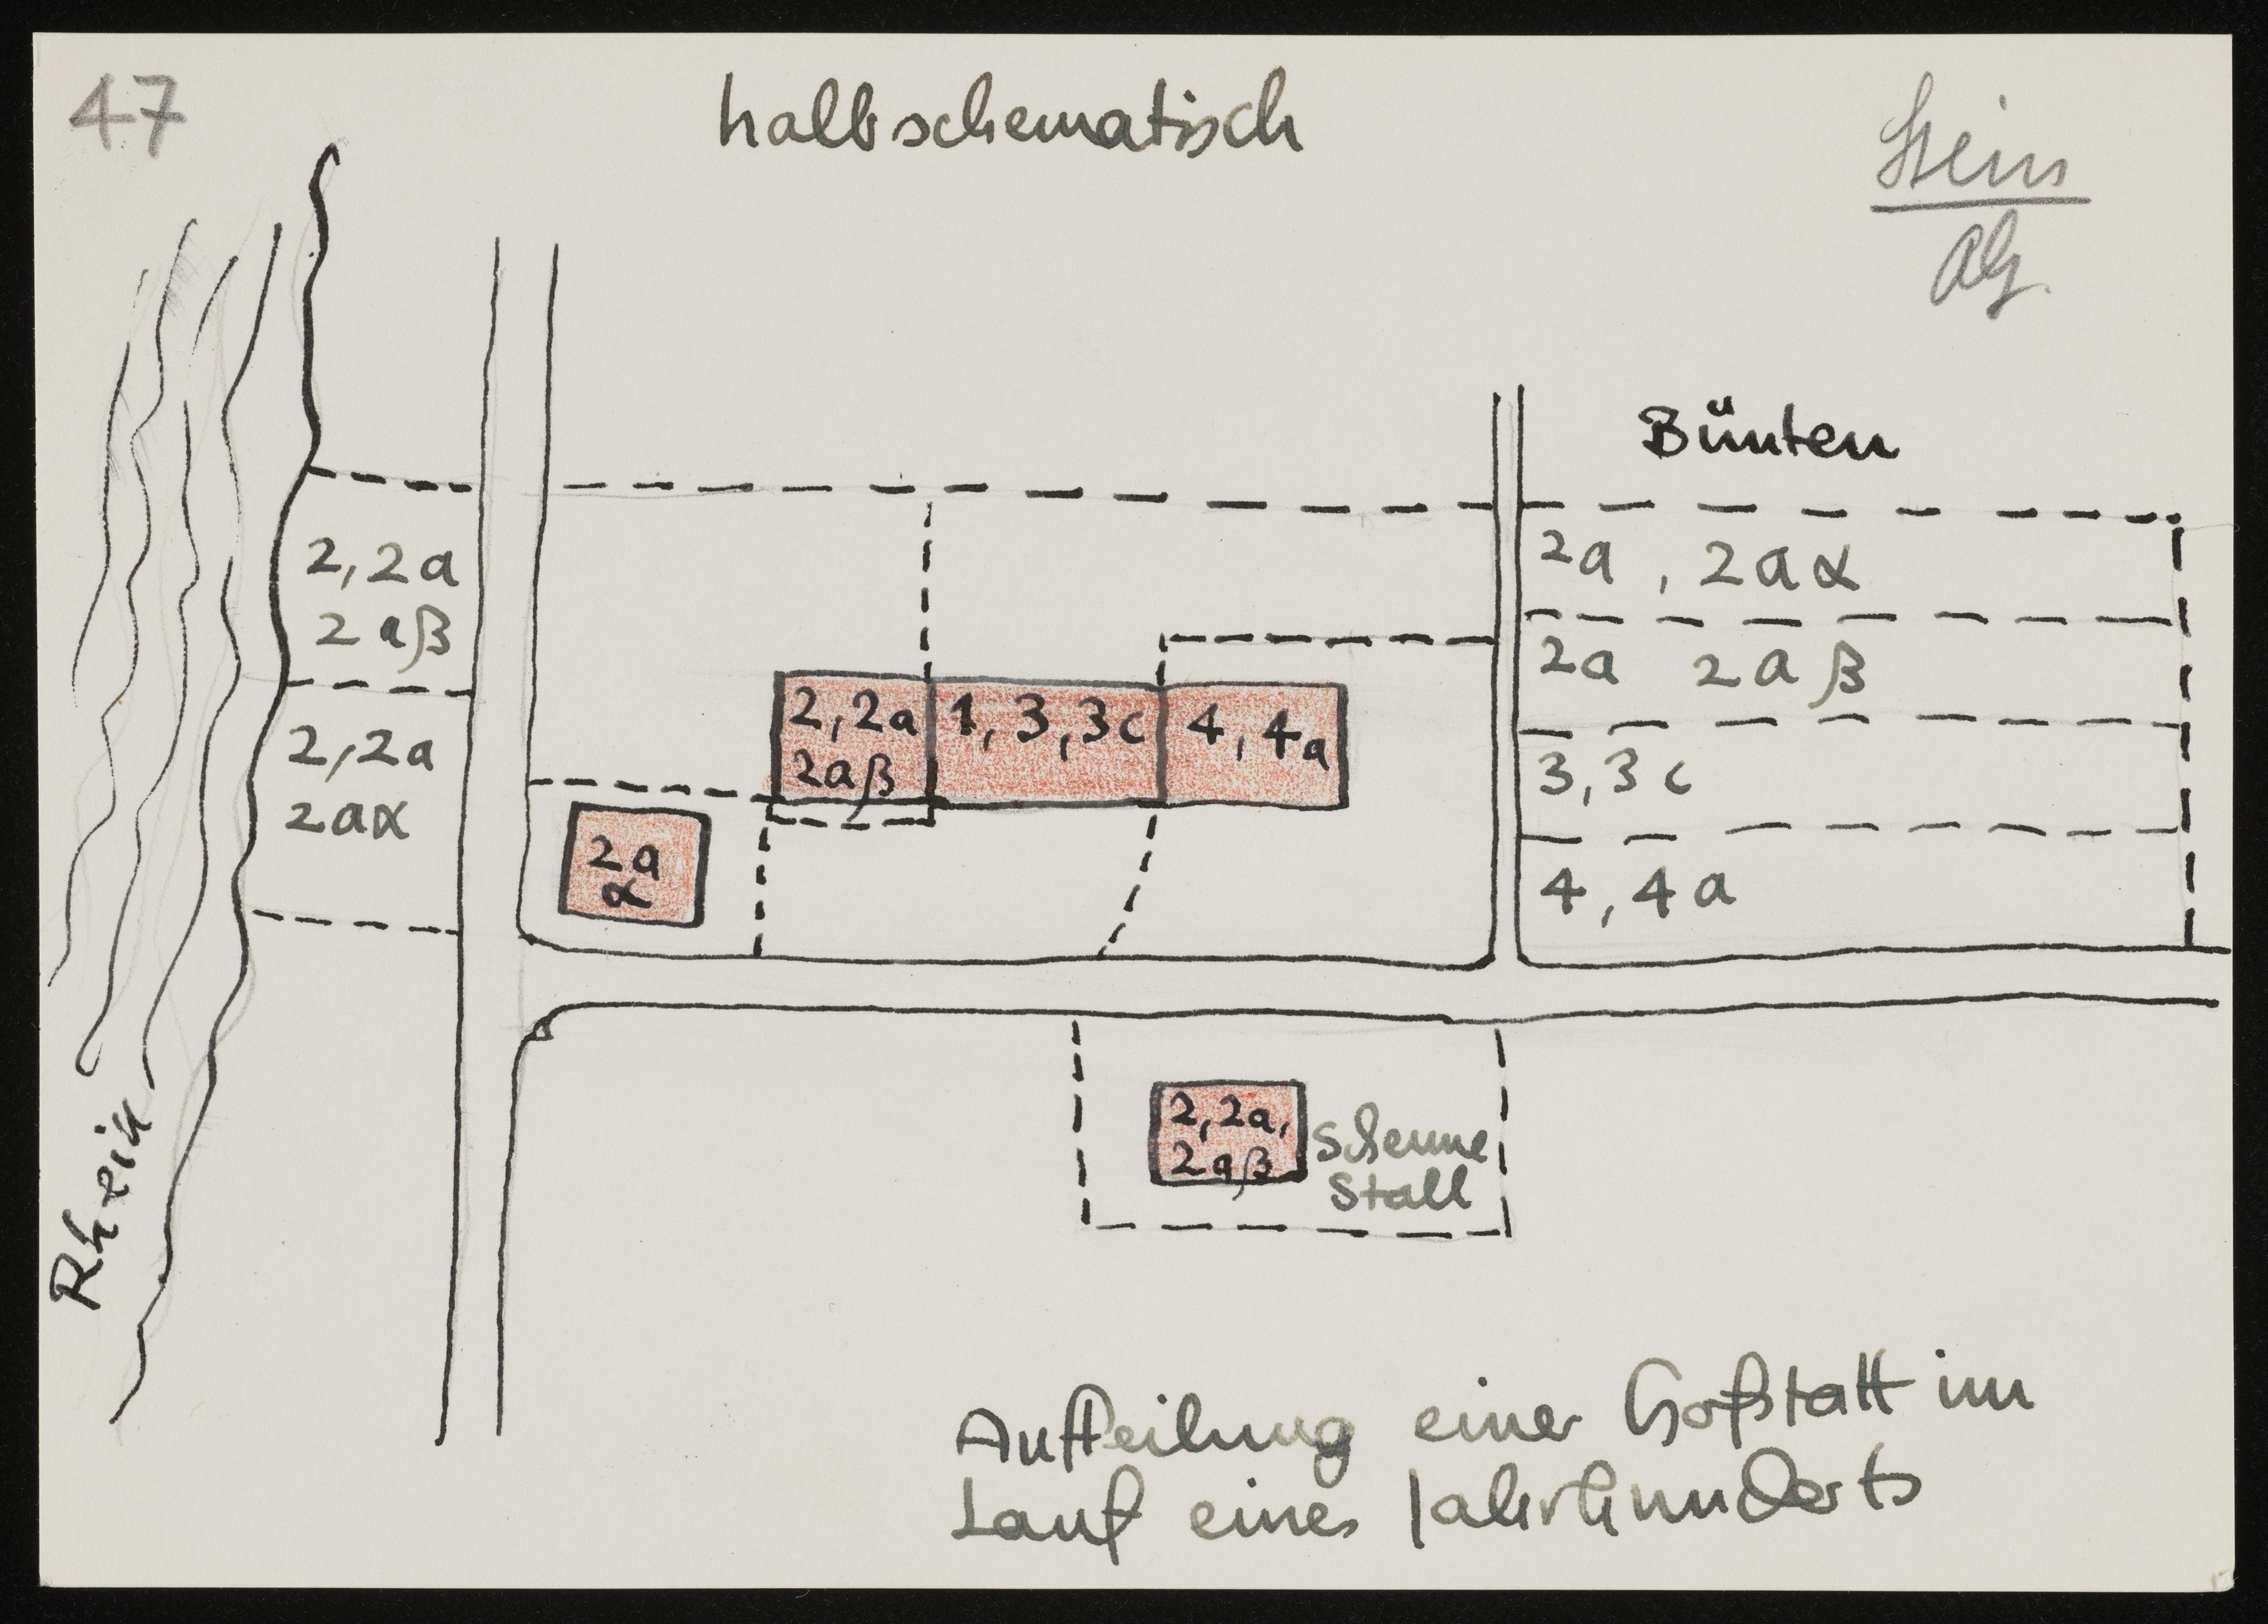 47
halbschematisch
Stein
AG.
Bünten
2,2a
2aβ
2,2a
2aα
2,2a
2aβ
1,3,3c
4,4a
2a
α
2a, 2aα
2a 2aβ
3,3c
4,4a
2,2a,
2aβ
Scheune
Stall
Rhein
Aufteilung einer Hofstatt im
Lauf eines Jahrhunderts